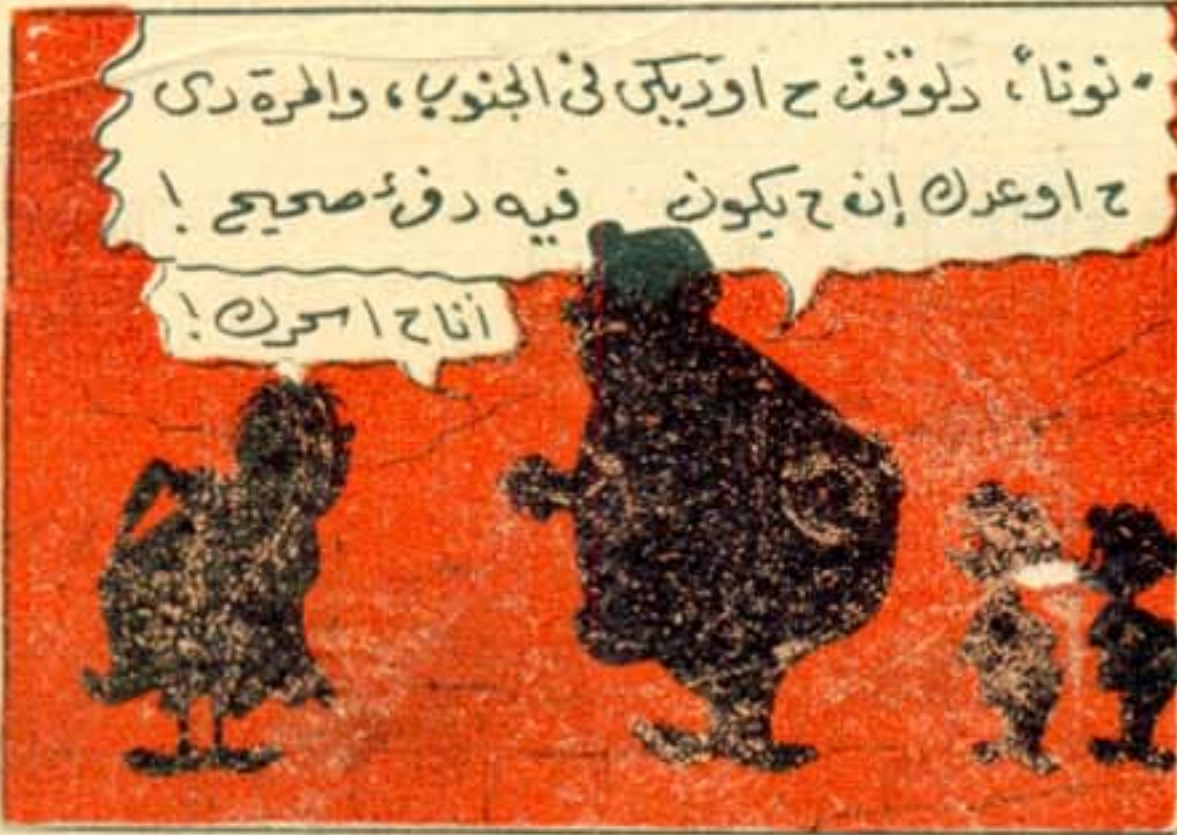 "نونا"، دلوقت ح اوديكى فى الجنوب، والمرة دى
ح اوعدك إن ح يكون فيه دفء صحيح !
انا ح اسحرك !